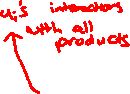 u_i's interactions
with all
products